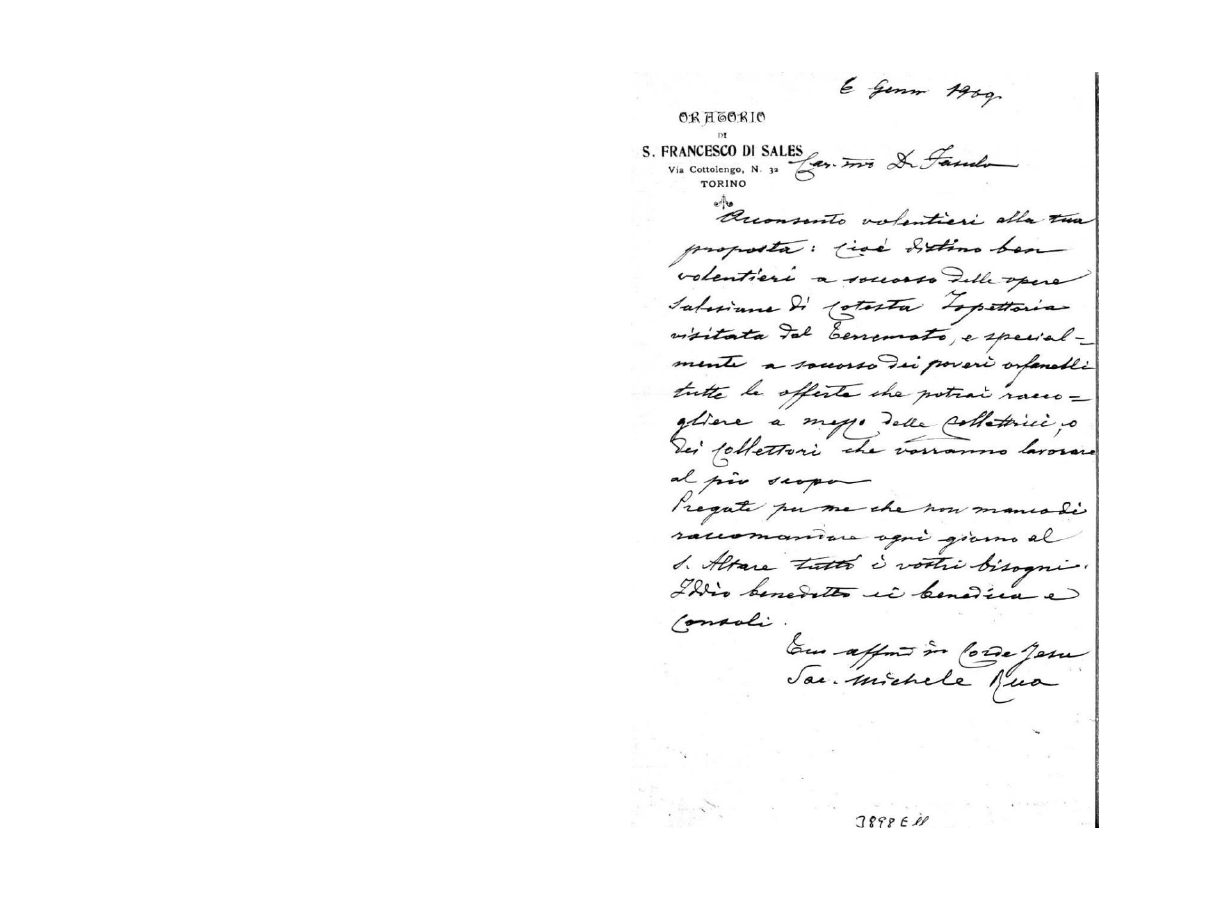 6 Genn 1909.
ORATORIO
DI
S. FRANCESCO DI SALES
Via Cottolengo, N. 32
TORINO
Car.mo D. Fasulo
Acconsento volentieri alla tua
proposta: cioè distino ben
volentieri a soccorso delle opere
Salesiane di cotesta Ispettoria
visitata dal Terremoto, e special=
mente a soccorso dei poveri orfanelli
tutte le offerte che potrai racco=
gliere a mezzo delle Collettrici, o
dei Collettori che vorranno lavorare
al pio scopo
Pregate per me che non manco di
raccomandare ogni giorno al
S. Altare tutti i vostri bisogni.
Iddio benedetto vi benedica e
consoli.
Tuo affmo in Corde Jesu
Sac. Michele Rua
3898 E